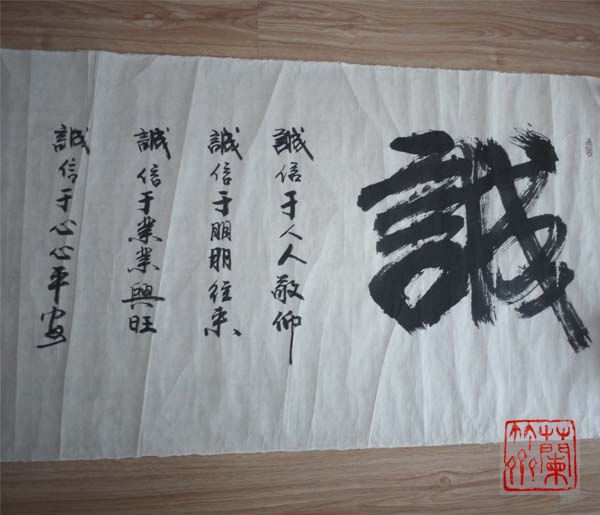 誠
誠信于人人敬仰
誠信于朋朋往来
誠信于業業興旺
誠信于心心平安
蘭